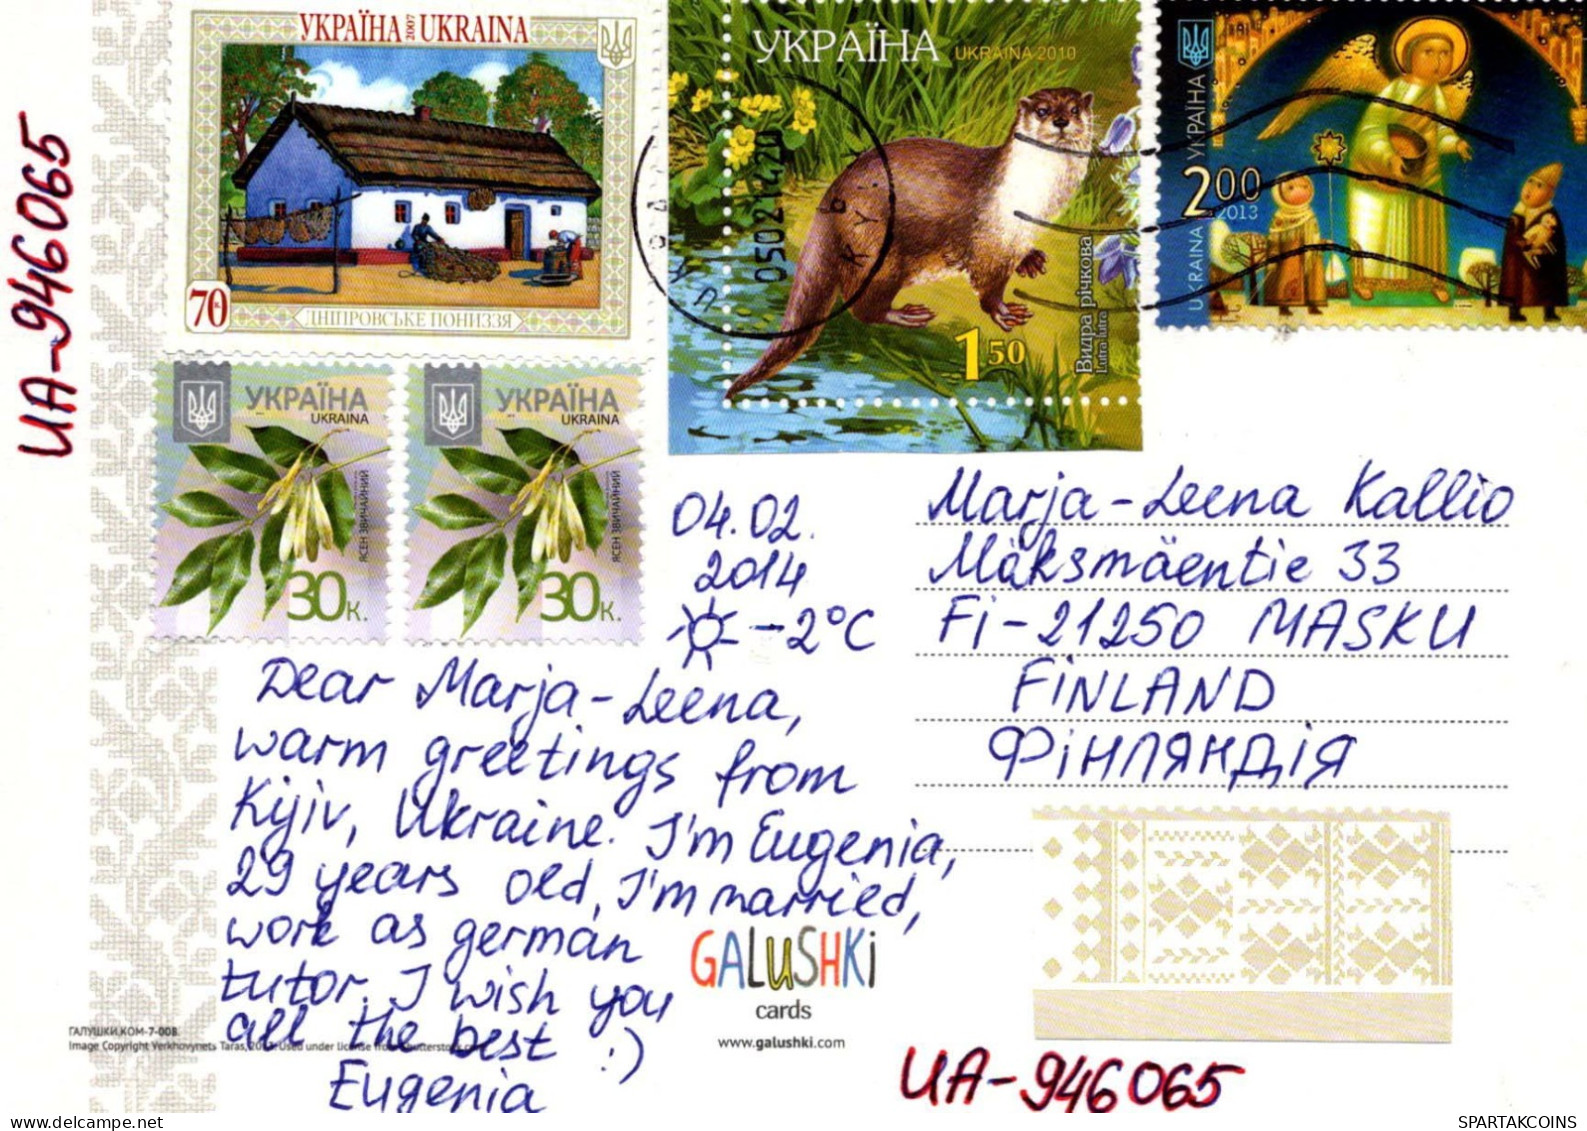 УКРАЇНА 2007 UKRAINA
70к
ДНІПРОВСЬКЕ ПОНИЗЗЯ
УКРАЇНА UKRAINA 2010
050214 20
Видра річкова
Lutra lutra
1.50
УКРАЇНА
UKRAINA
2.00
2013
UA-946065
УКРАЇНА
UKRAINA
ЯСЕН ЗВИЧАЙНИЙ
30к.
УКРАЇНА
UKRAINA
ЯСЕН ЗВИЧАЙНИЙ
30к.
04.02.
2014
-2°C
Marja-Leena Kallio
Maksmäentie 33
Fi-21250 MASKU
FiNLAND
ФІНЛЯНДІЯ
Dear Marja-Leena,
warm greetings from
Kyjiv, Ukraine. I'm Eugenia,
29 years old, I'm married,
work as german
tutor. I wish you
all the best :)
Eugenia
GALUSHKi
cards
www.galushki.com
ГАЛУШКИ.КОМ-7-008
Image Copyright Verkhovynets Taras, 2013. Used under license from Shutterstock.com
UA-946065
SPARTAKCOINS